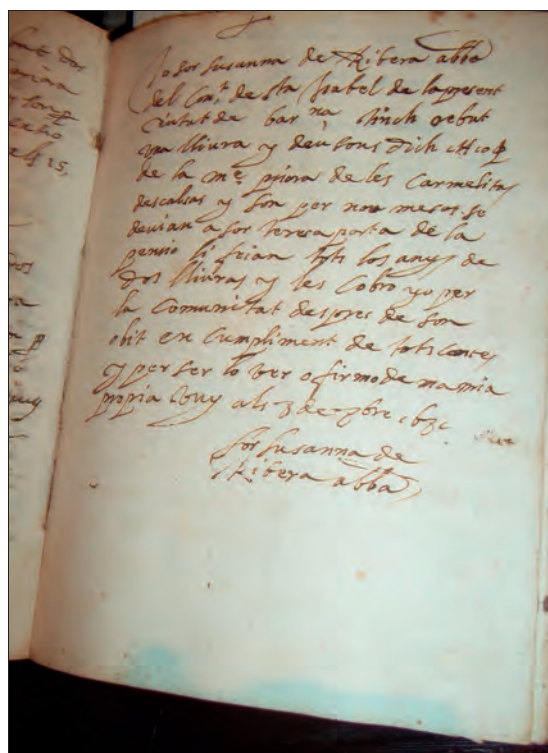 but dos
els 15,
Jo sor susanna de Ribera abba
del Cont. de sta Isabel de la present
Ciutat de barna tinch rebut
una lliura y deu sous dich
de la me. priora de les Carmelitas
descalsas y son per nou mesos se
devian a sor teresa porta de la
pensio li feian tots los anys de
dos lliuras y les Cobro yo per
la Comunitat despres de son
obit en Cumpliment de tots contes
y per ser lo ver o firmo de ma mia
propia vuy als 3 de
sor susanna de
Ribera abba